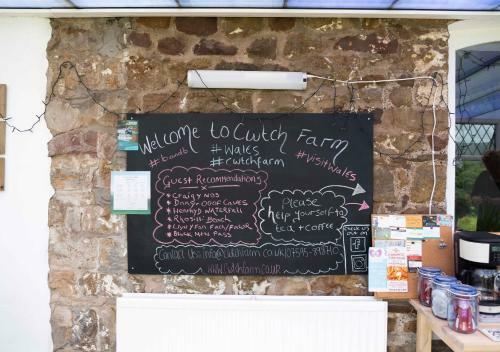 Welcome to Cwtch Farm
#bandb
#Wales
#cwtchfarm
#VisitWales
Guest Recommendations
* Craig y Nos
* Dan-yr-Ogof Caves
* Henrhyd Waterfall
* Rhossili Beach
* Llyn y Fan Fach/Fawr
* Black Mtn Pass
Please
help yourself to
tea + coffee
Check us
out on
Contact Us:
www.cwtch